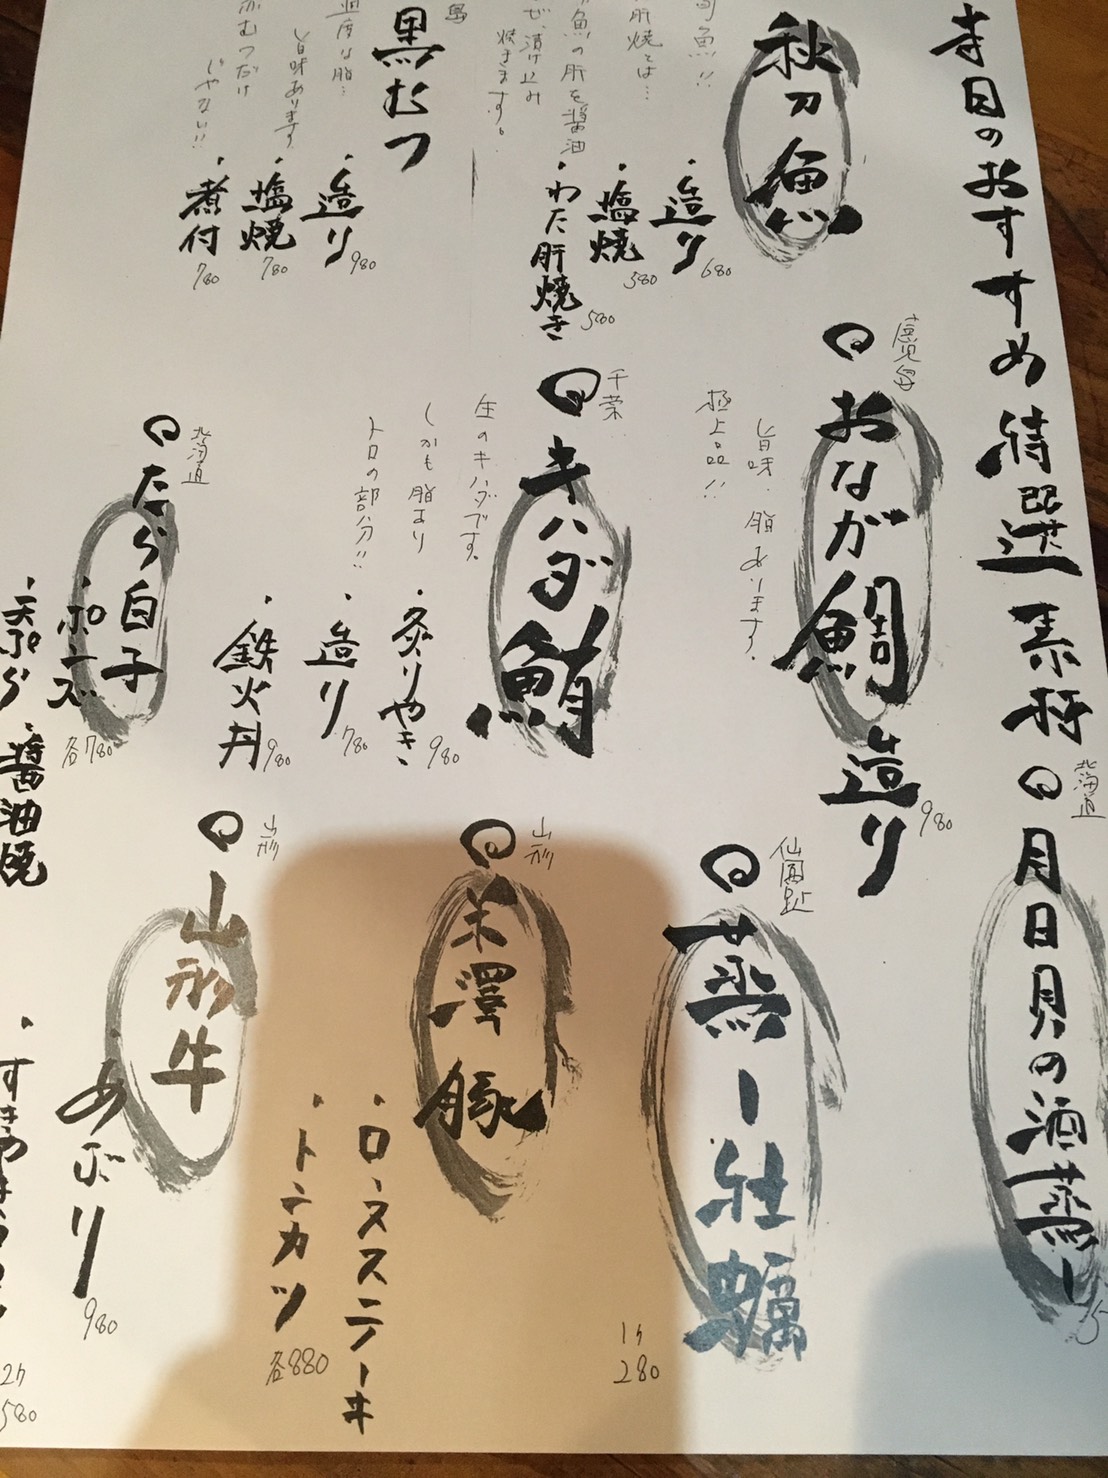 本日のおすすめ特選素材
秋刀魚
旬魚!!
肝焼とは…
魚の肝を醤油
漬け込み
焼きます。
・造り 680
・塩焼 580
・わた肝焼き 580
黒むつ
適度な脂…
旨味あります
赤むつだけ
じゃない!!
・造り 980
・塩焼 780
・煮付 780
鹿児島
おなが鯛造り 980
旨味、脂あります。
極上品!!
千葉
キハダ鮪
生のキハダです。
しかも脂あり
トロの部分!!
・炙りやき 980
・造り 780
・鉄火丼 980
北海道
たら白子
・ポン酢
・天ぷら
・醤油焼
各780
北海道
月日貝の酒蒸し
仙鳳趾
蒸し牡蠣
1ケ
280
山形
米澤豚
・ロースステーキ
・トンカツ
各880
山形
山形牛
・あぶり 980
2ケ
580